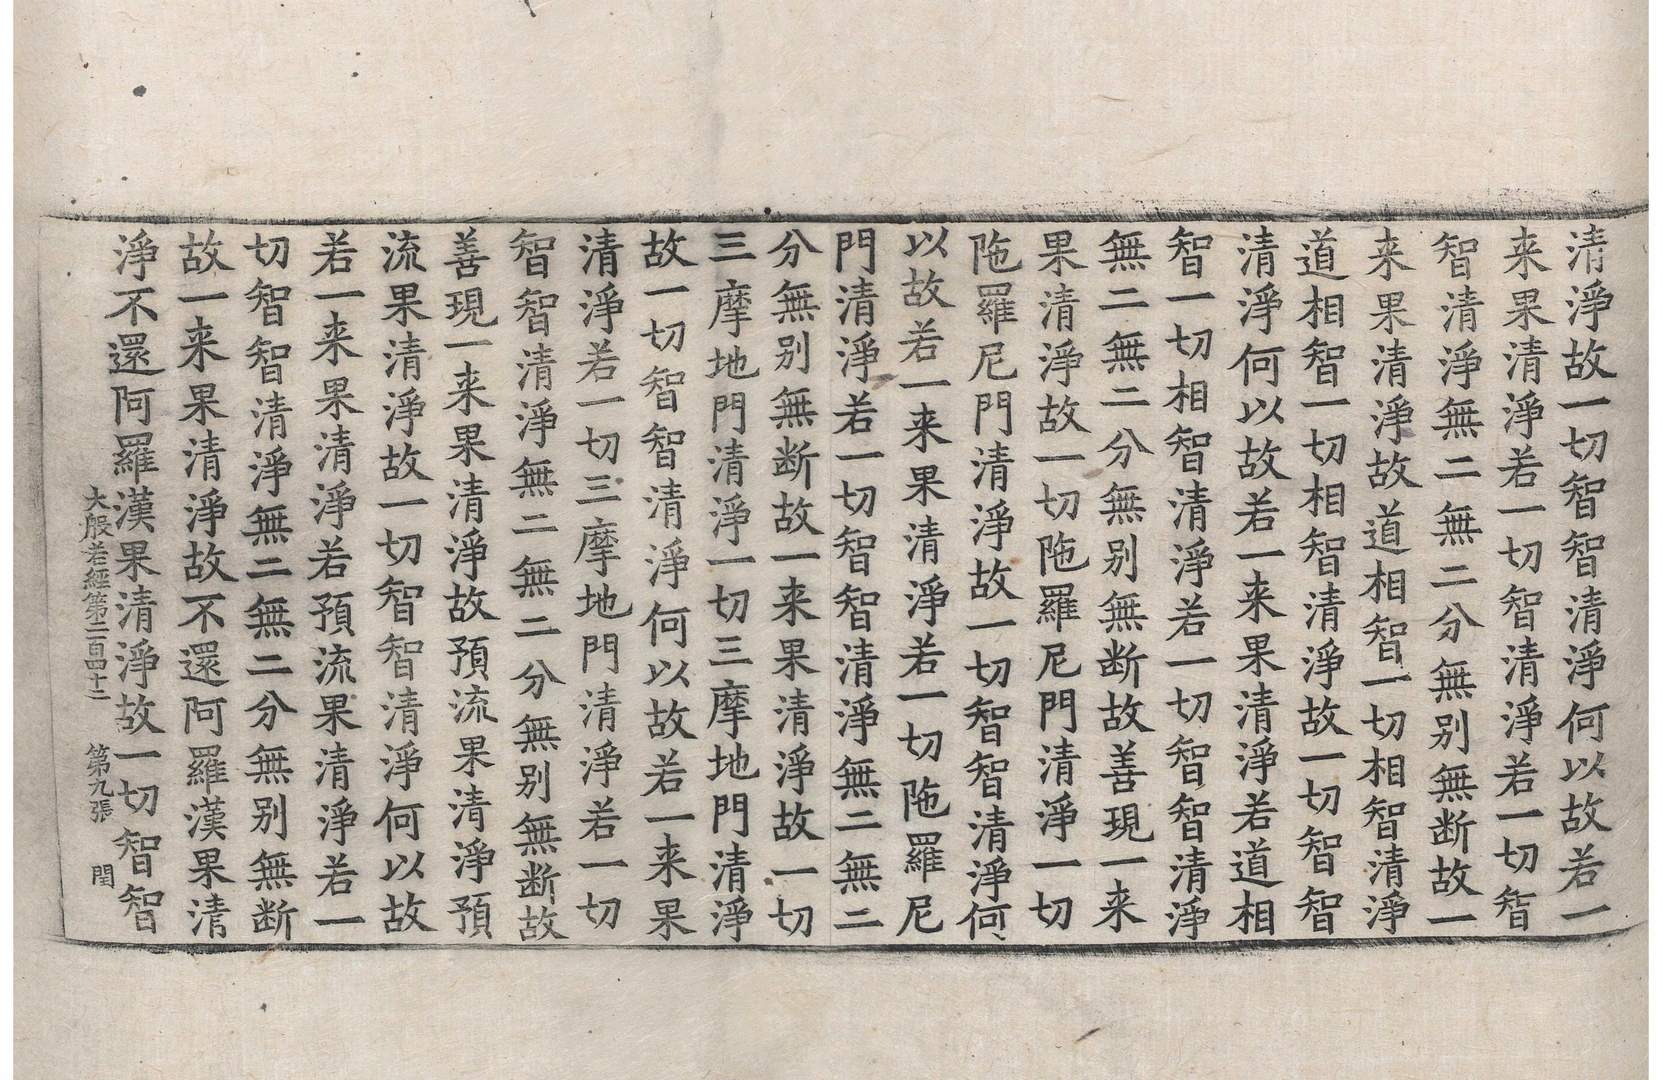 清淨故一切智智清淨何以故若一
来果清淨若一切智清淨若一切智
智清淨無二無二分無别無断故一
来果清淨故道相智一切相智清淨
道相智一切相智清淨故一切智智
清淨何以故若一来果清淨若道相
智一切相智清淨若一切智智清淨
無二無二分無别無断故善現一来
果清淨故一切陁羅尼門清淨一切
陁羅尼門清淨故一切智智清淨何
以故若一来果清淨若一切陁羅尼
門清淨若一切智智清淨無二無二
分無别無断故一来果清淨故一切
三摩地門清淨一切三摩地門清淨
故一切智智清淨何以故若一来果
清淨若一切三摩地門清淨若一切
智智清淨無二無二分無别無断故
善現一来果清淨故預流果清淨預
流果清淨故一切智智清淨何以故
若一来果清淨若預流果清淨若一
切智智清淨無二無二分無别無断
故一来果清淨故不還阿羅漢果清
淨不還阿羅漢果清淨故一切智智
大般若經第二百四十二 第九張 閏